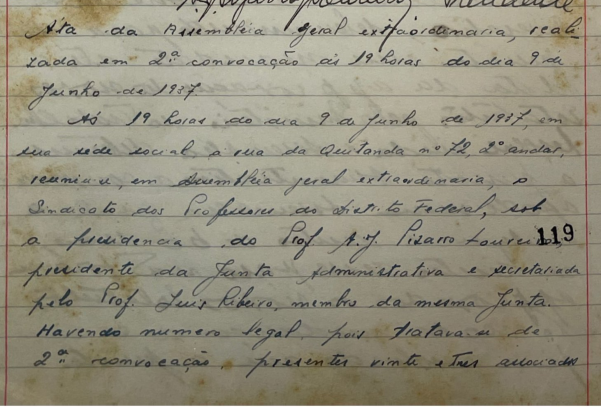 Ata da Assembléia geral extraordinaria, reali-
zada em 2ª convocação ás 19 horas do dia 9 de
Junho de 1937.
Ás 19 horas do dia 9 de Junho de 1937, em
sua séde social, a rua da Quitanda nº 72, 2º andar,
reuniu-se, em Assembléia geral extraordinaria, o
Sindicato dos Professores do Distrito Federal, sob
a presidencia do Prof. A. J. Pizarro Loureiro,
119
presidente da Junta Administrativa e secretariada
pelo Prof. Luis Ribeiro, membro da mesma Junta.
Havendo numero legal, pois tratava-se de
2ª convocação, presentes vinte e tres associados